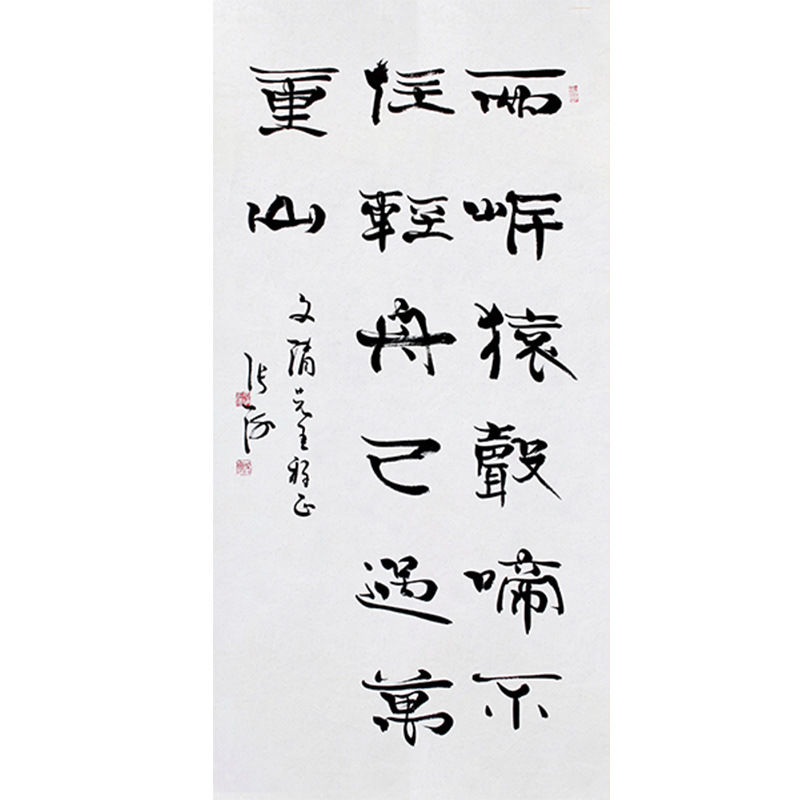 兩岸猿聲啼不
住輕舟已過萬
重山
文清先生雅正